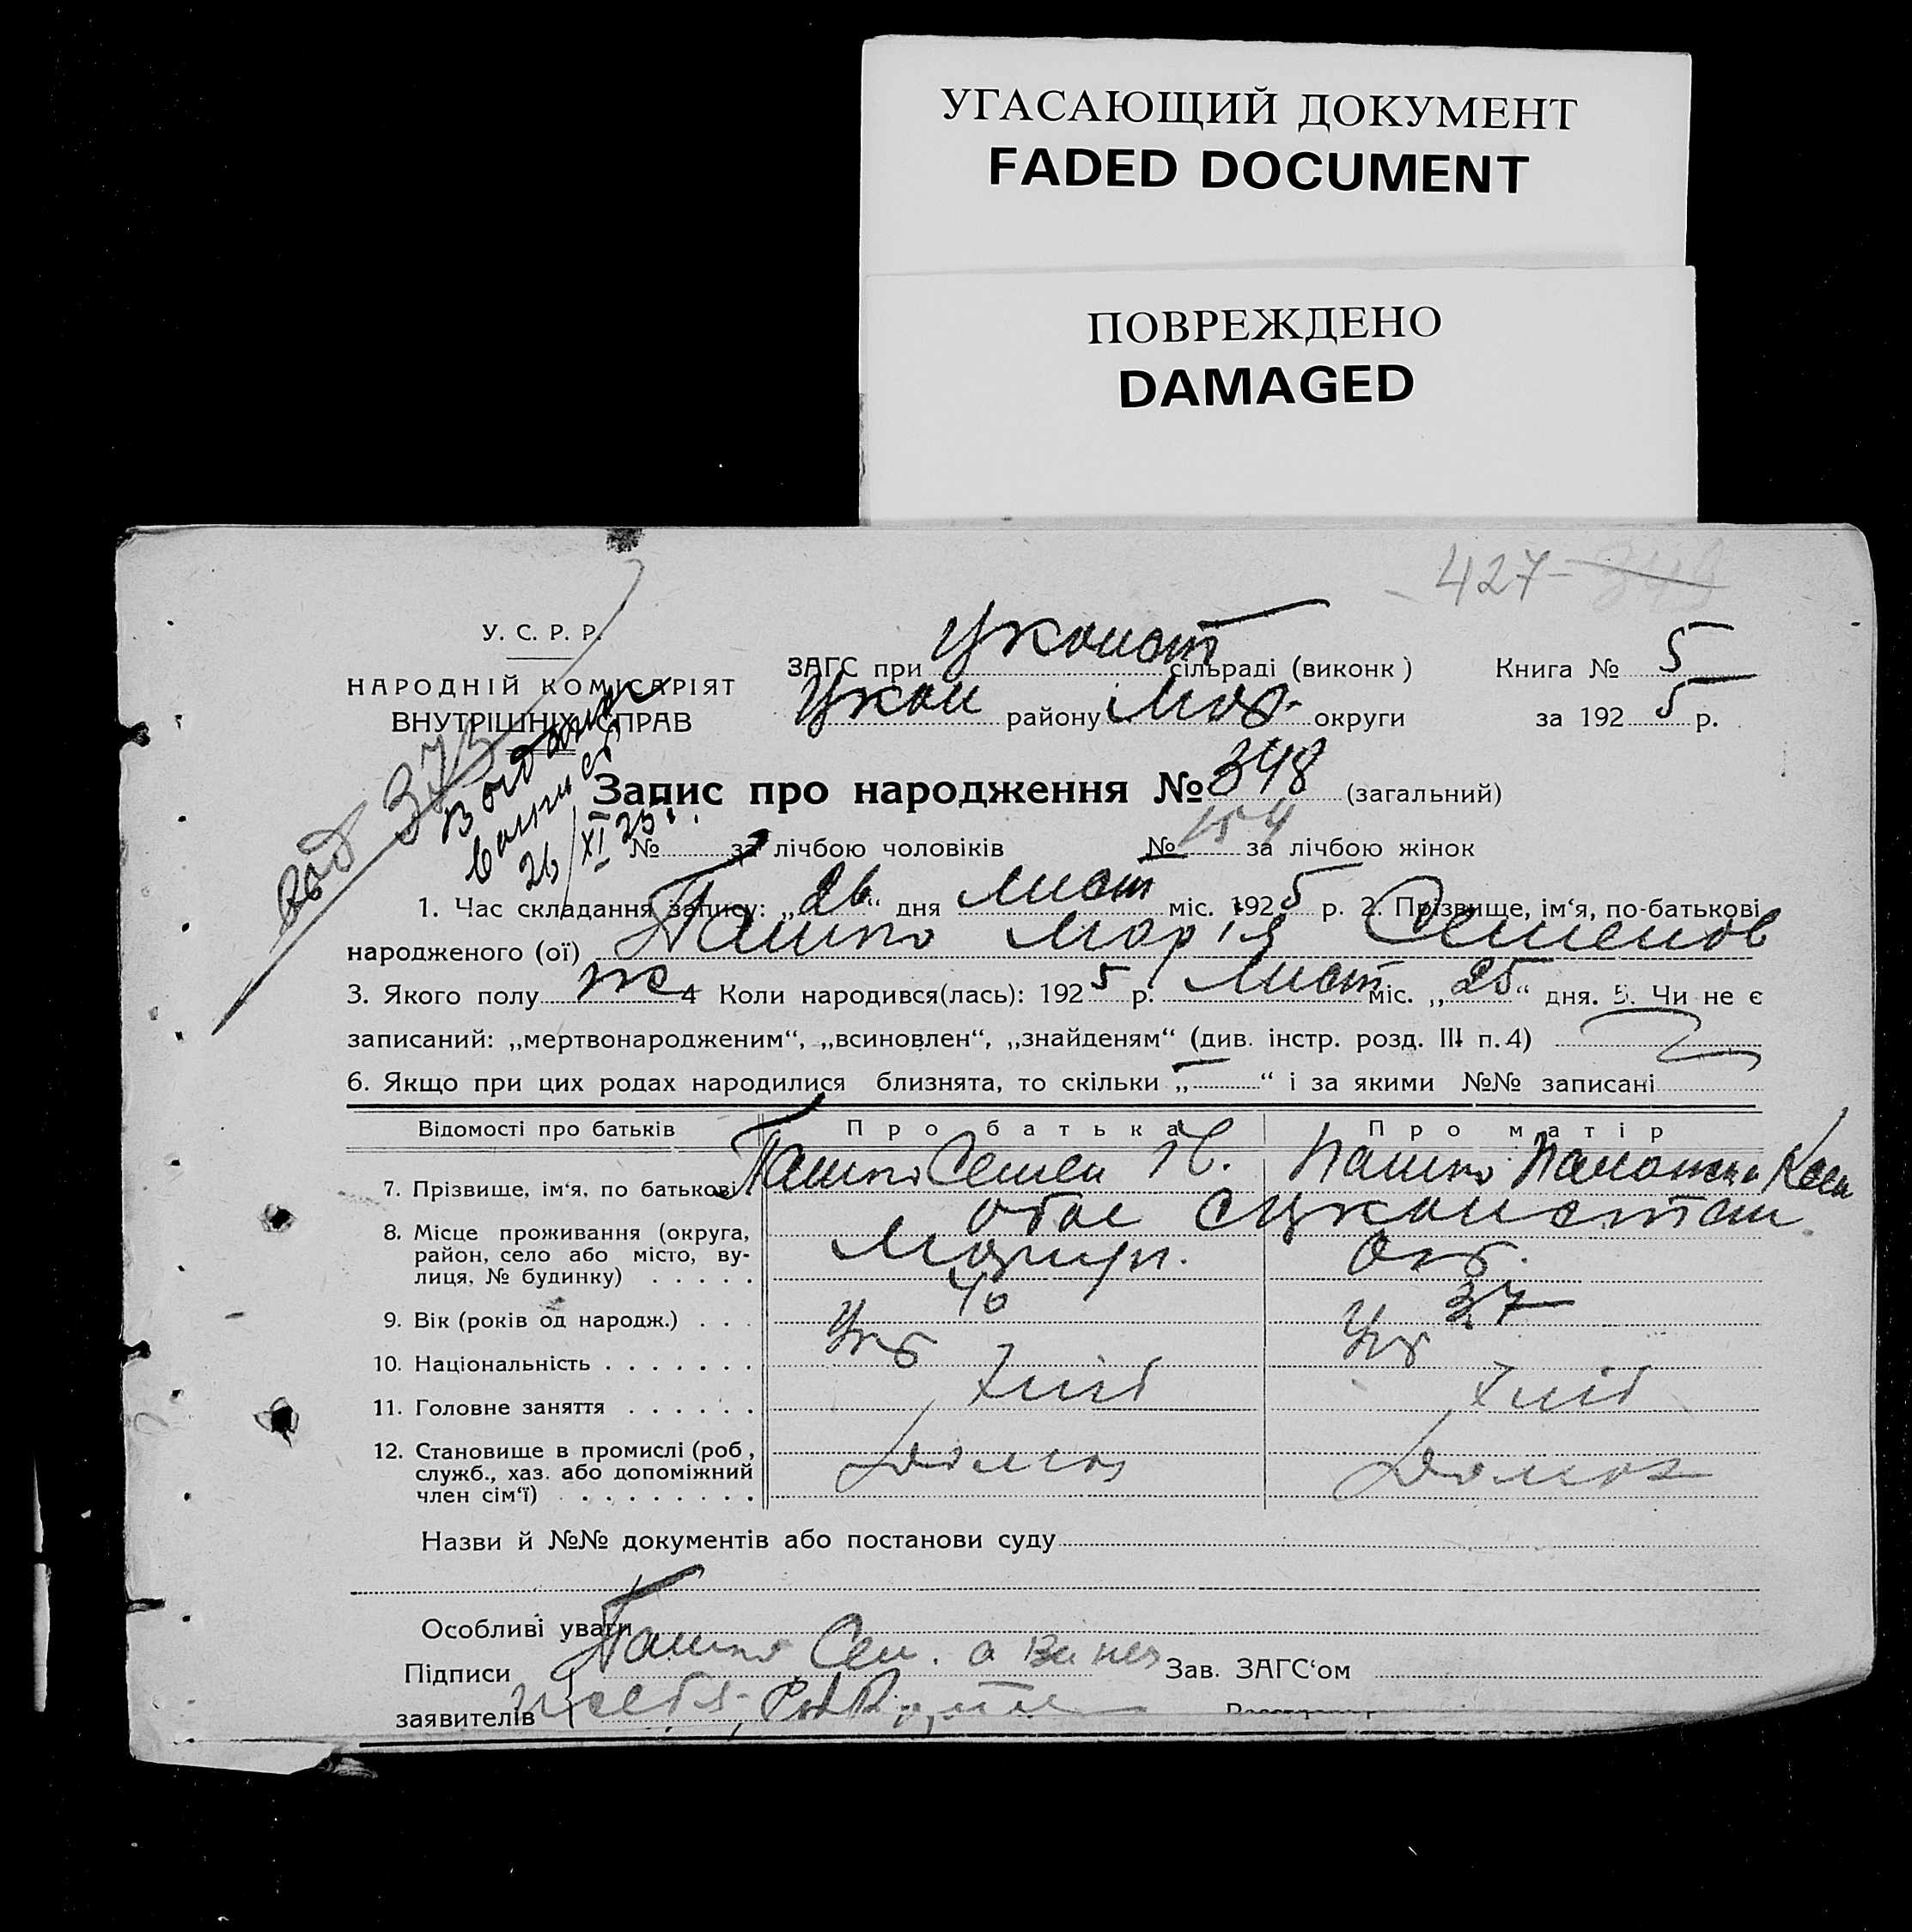 УГАСАЮЩИЙ ДОКУМЕНТ
FADED DOCUMENT
ПОВРЕЖДЕНО
DAMAGED
427-
У. С. Р. Р.
НАРОДНІЙ КОМІСАРІЯТ
ВНУТРІШНІХ СПРАВ
ЗАГС при Цконст сільраді (виконк) Книга № 5
Цкон району Мар. округи за 1925 р.
373
26/XI 25
Запис про народження № 348 (загальний)
№ за лічбою чоловіків № 154 за лічбою жінок
1. Час складання запису: „26“ дня лист міс. 1925 р. 2. Прізвище, ім‘я, по-батькові
народженого (ої) Пашко Марія Семенов
3. Якого полу ж 4 Коли народився(лась): 1925 р. Лист міс. „25“ дня. 5. Чи не є
записаний: „мертвонародженим“, „всиновлен“, „знайденям“ (див. інстр. розд. III п. 4)
6. Якщо при цих родах народилися близнята, то скільки „ “ і за якими №№ записані
Відомості про батьків Про батька Про матір
7. Прізвище, ім‘я, по батькові Пашко Семен Пашко
8. Місце проживання (округа,
район, село або місто, ву-
лиця, № будинку) Маріуп. Окр.
9. Вік (років од народж.) 40 37
10. Національність Укр Укр
11. Головне заняття Хліб Хліб
12. Становище в промислі (роб.,
служб., хаз. або допоміжний
член сім‘ї) Домаз Домаз
Назви й №№ документів або постанови суду
Особливі уваги
Підписи Пашко Сем. а Зав. ЗАГС‘ом
заявителів